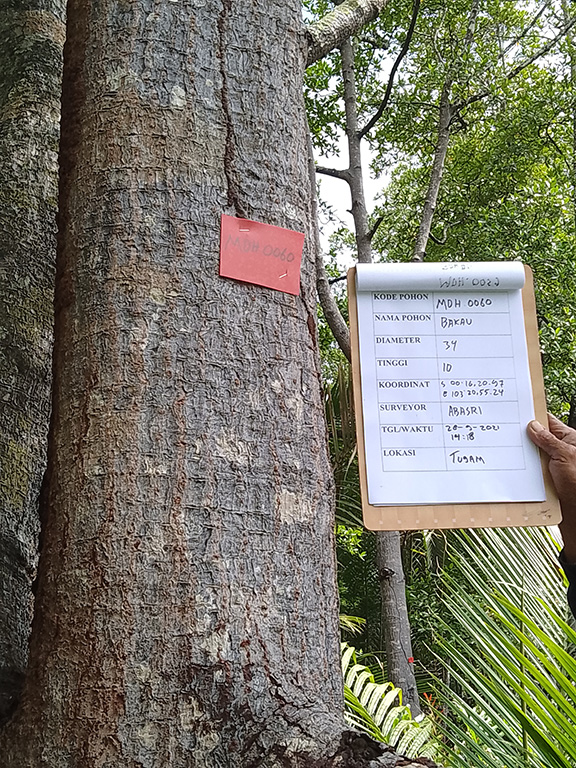 MDH 0060
MDH 0023
KODE POHON MDH 0060
NAMA POHON BAKAU
DIAMETER 34
TINGGI 10
KOORDINAT S 00.16.20.97
E 103 20.55.24
SURVEYOR ABASRI
TGL/WAKTU 28-9-2021
14:18
LOKASI TUGAM